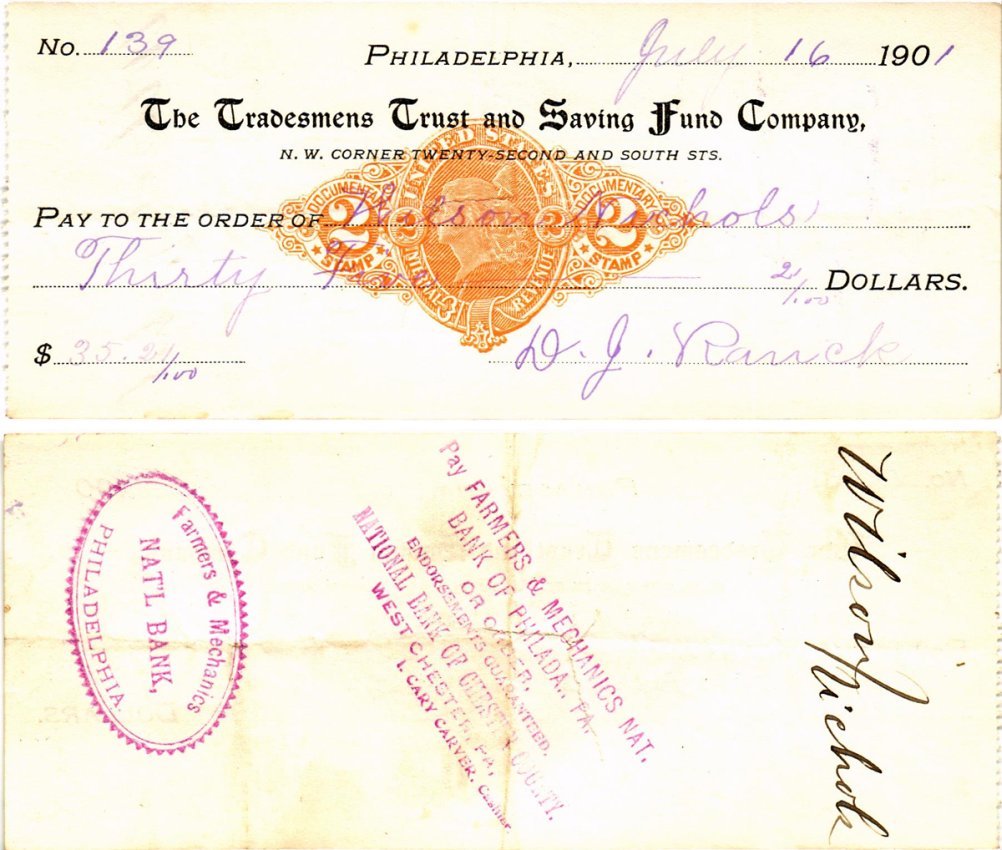 No. 139
PHILADELPHIA, July 16 1901
The Tradesmens Trust and Saving Fund Company,
N. W. CORNER TWENTY-SECOND AND SOUTH STS.
UNITED STATES
DOCUMENTARY 2 STAMP
2 2
DOCUMENTARY 2 STAMP
INTERNAL REVENUE
PAY TO THE ORDER OF Wilson Nichols
Thirty Five 21/100 DOLLARS.
$ 35.21/100
D. J. Ranck
Farmers & Mechanics
NAT'L BANK,
PHILADELPHIA.
Pay FARMERS & MECHANICS NAT.
BANK OF PHILADA., PA.
OR ORDER,
ENDORSEMENTS GUARANTEED.
NATIONAL BANK OF CHESTER COUNTY,
WEST CHESTER, PA.
I. CARY CARVER, Cashier
Wilson Nichols